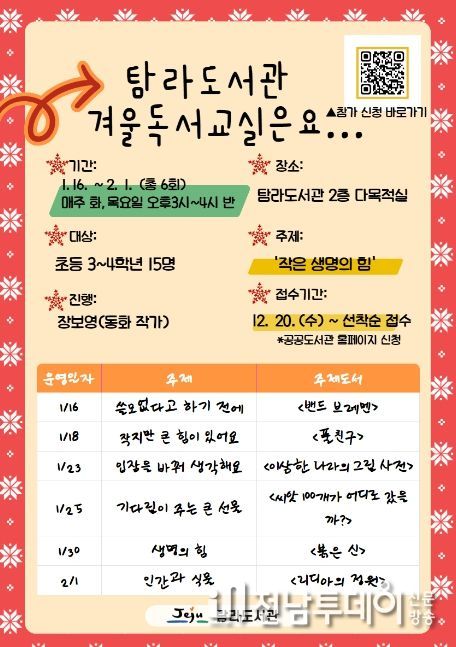 탐라도서관
겨울독서교실은요...
▲참가 신청 바로가기
기간:
1.16. ~ 2. 1. (총 6회)
매주 화, 목요일 오후3시~4시 반
장소:
탐라도서관 2층 다목적실
대상:
초등 3~4학년 15명
주제:
'작은 생명의 힘'
진행:
장보영(동화 작가)
접수기간:
12. 20. (수) ~ 선착순 접수
*공공도서관 홈페이지 신청
운영일자 주제 주제도서
1/16 쓸모없다고 하기 전에 <밴드 브레멘>
1/18 작지만 큰 힘이 있어요 <풀친구>
1/23 입장을 바꿔 생각해요 <이상한 나라의 그림 사전>
1/25 기다림이 주는 큰 선물 <씨앗 100개가 어디로 갔을
까?>
1/30 생명의 힘 <붉은 신>
2/1 인간과 식물 <리디아의 정원>
Jeju 탐라도서관
전남투데이 신문
방송